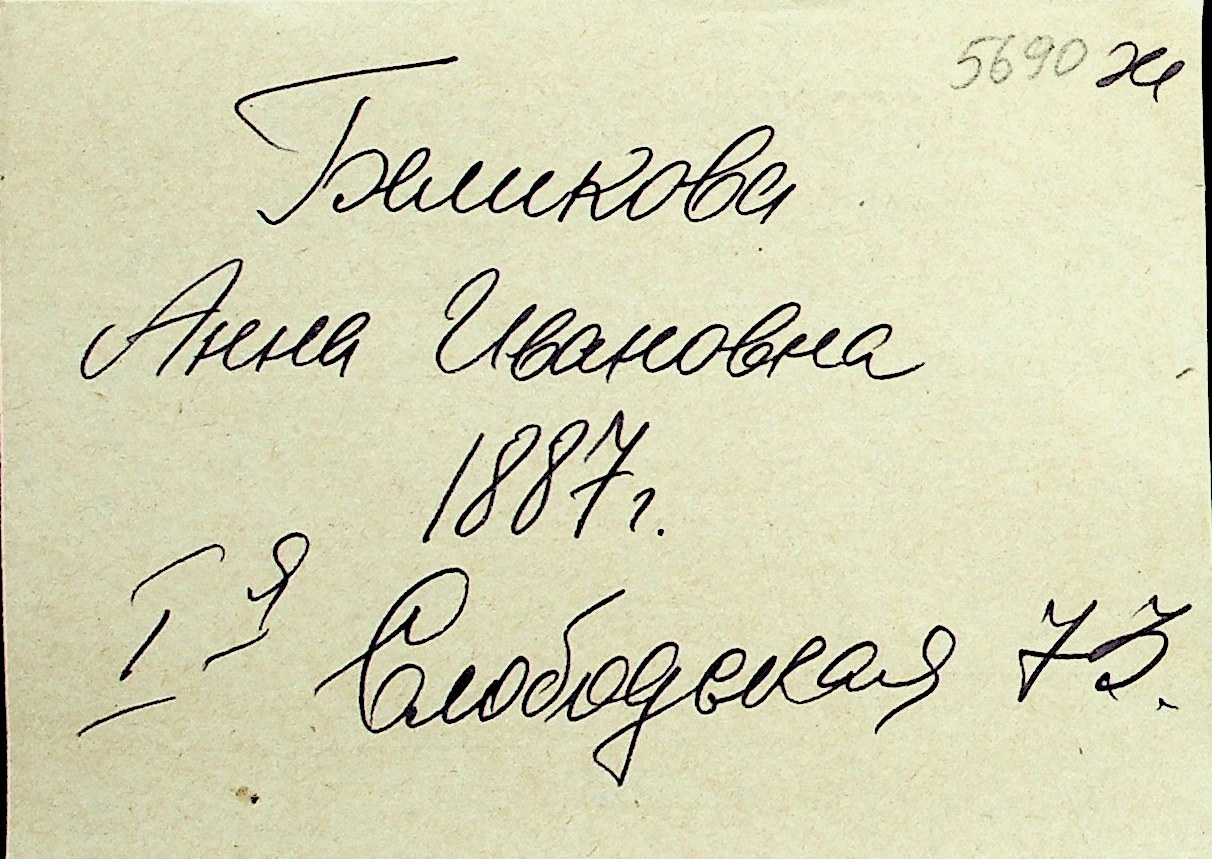 5690 ж
Беликова
Анна Ивановна
1887 г.
I я Слободская 73.